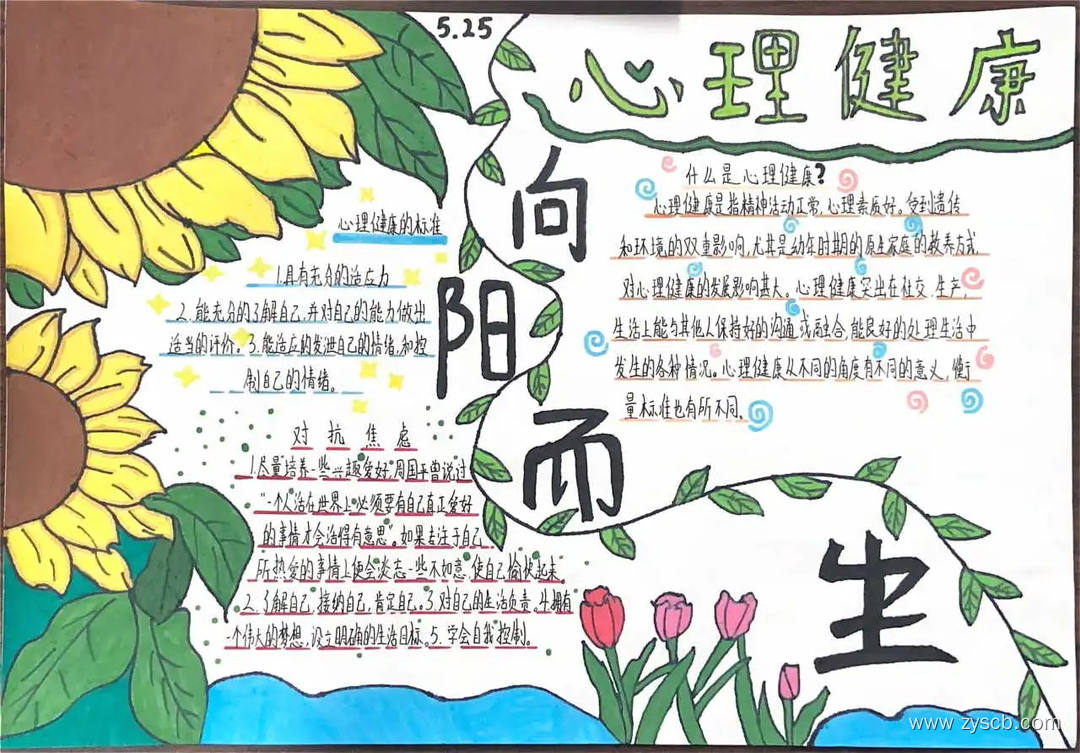 5.25
心理健康
向
阳
而
生
什么是心理健康?
心理健康是指精神活动正常,心理素质好。受到遗传
和环境的双重影响,尤其是幼年时期的原生家庭的教养方式
对心理健康的发展影响甚大。心理健康突出在社交.生产,
生活上能与其他人保持好的沟通或融合,能良好的处理生活中
发生的各种情况。心理健康从不同的角度有不同的意义,衡
量标准也有所不同。
心理健康的标准
1.具有充分的适应力
2.能充分的了解自己,并对自己的能力做出
适当的评价。3.能适应的发泄自己的情绪,和控
制自己的情绪。
对抗焦虑
1.尽量培养一些兴趣爱好,周国平曾说过
“一个人活在世界上必须要有自己真正爱好
的事情才会活得有意思”。如果专注于自己
所热爱的事情上便会淡忘一些不如意,使自己愉快起来。
2.了解自己,接纳自己,肯定自己。3.对自己的生活负责。4.拥有
一个伟大的梦想,设立明确的生活目标。5.学会自我控制。
www.zyscb.com